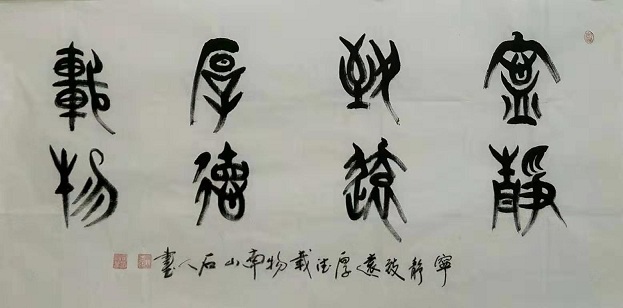 寧靜
致遠
厚德
載物
寧靜致遠厚德載物南山石人書